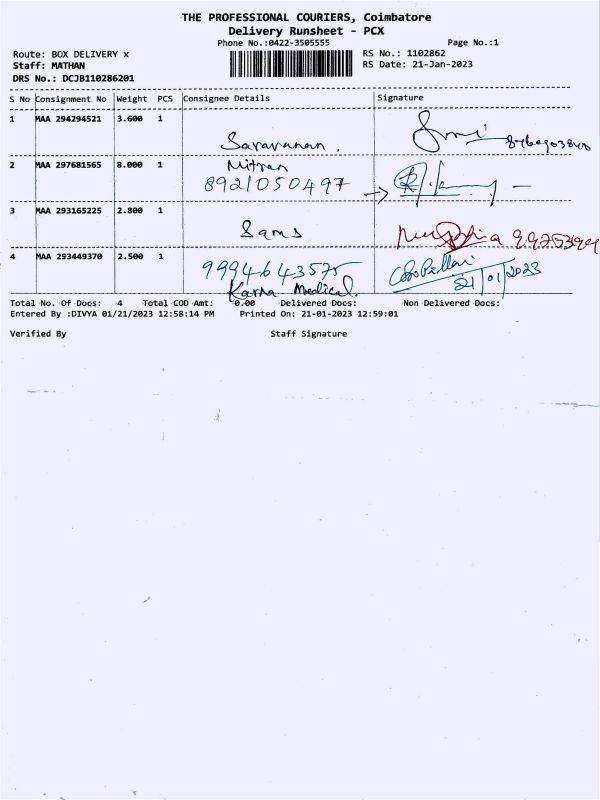 THE PROFESSIONAL COURIERS, Coimbatore
Delivery Runsheet - PCX
Phone No.:0422-3505555 Page No.:1
Route: BOX DELIVERY x RS No.: 1102862
Staff: MATHAN RS Date: 21-Jan-2023
DRS No.: DCJB110286201
S No Consignment No Weight PCS Consignee Details Signature
1 MAA 294294521 3.600 1
Saravanan.
2 MAA 297681565 8.000 1 Mitran
8921050497
3 MAA 293165225 2.800 1
Sams
4 MAA 293449370 2.500 1
9994643575
Karna Medical. 21/01/2023
Total No. Of Docs: 4 Total COD Amt: 0.00 Delivered Docs: Non Delivered Docs:
Entered By :DIVYA 01/21/2023 12:58:14 PM Printed On: 21-01-2023 12:59:01
Verified By Staff Signature